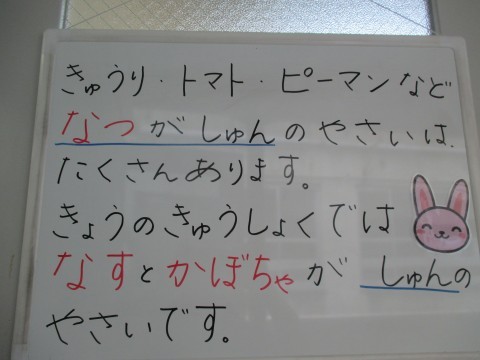 きゅうり・トマト・ピーマンなど
なつがしゅんのやさいは、
たくさんあります。
きょうのきゅうしょくでは
なすとかぼちゃがしゅんの
やさいです。